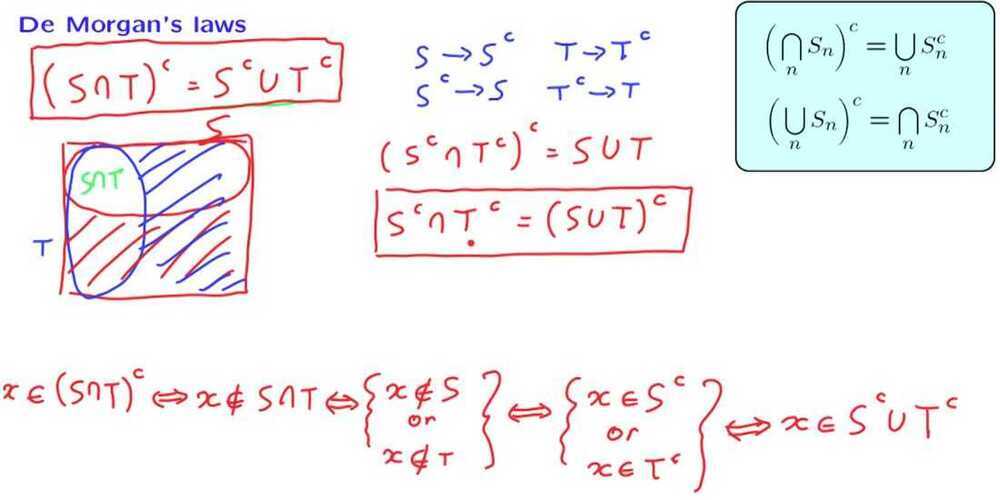 De Morgan's laws
(S∩T)ᶜ = Sᶜ∪Tᶜ
S
S∩T
T
S → Sᶜ T → Tᶜ
Sᶜ → S Tᶜ → T
(Sᶜ∩Tᶜ)ᶜ = S∪T
Sᶜ∩Tᶜ = (S∪T)ᶜ
(⋂ₙ Sₙ)ᶜ = ⋃ₙ Sₙᶜ
(⋃ₙ Sₙ)ᶜ = ⋂ₙ Sₙᶜ
x∈(S∩T)ᶜ ⇔ x∉S∩T ⇔ { x∉S or x∉T } ⇔ { x∈Sᶜ or x∈Tᶜ } ⇔ x∈Sᶜ∪Tᶜ